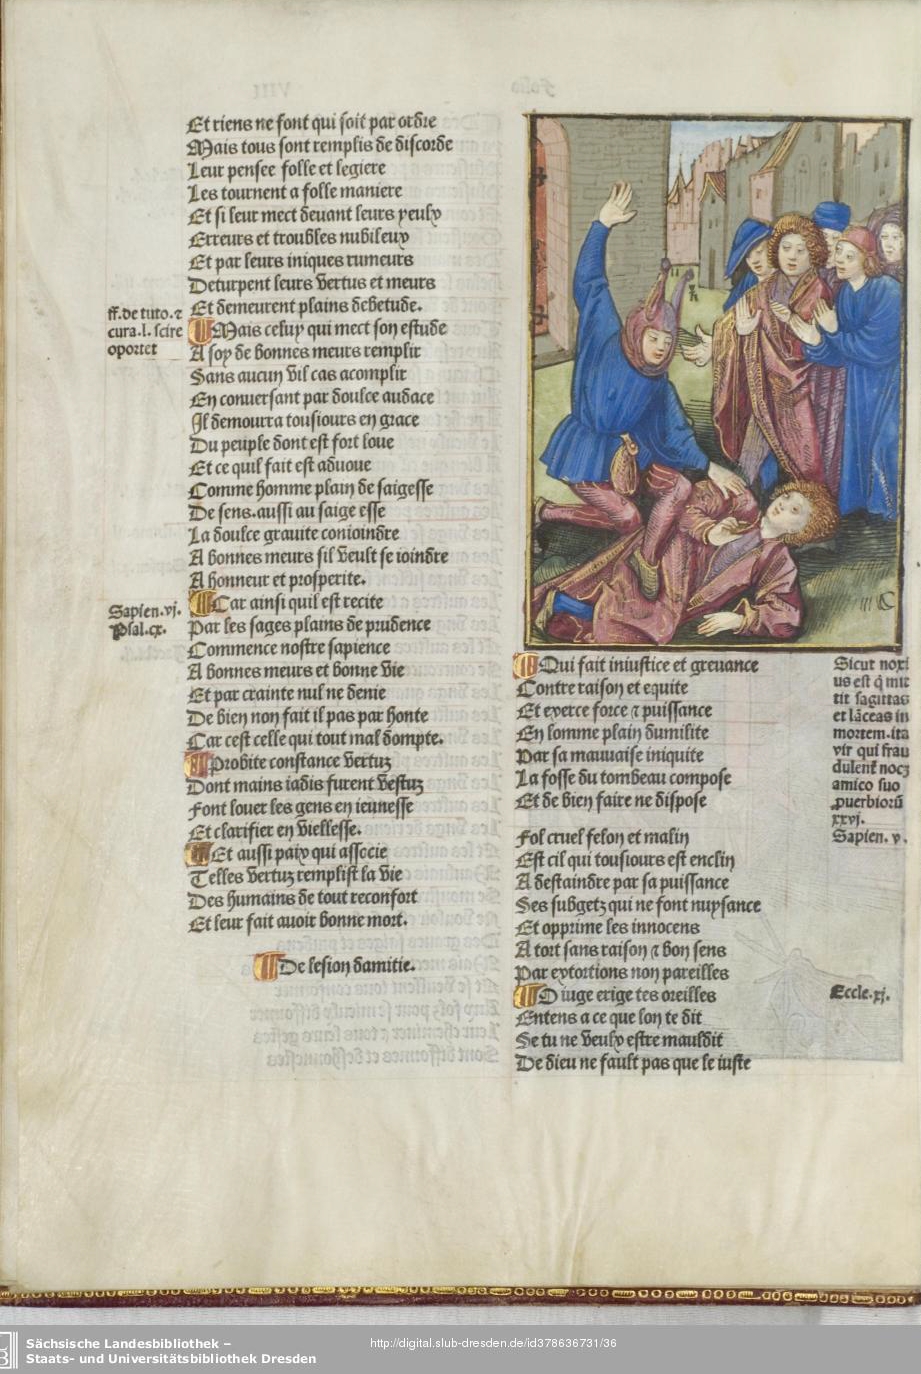 Et riens ne font qui soit par ordre
Mais tous sont remplis de discorde
Leur pensee folle et legiere
Les tournent a folle maniere
Et si leur mect devant leurs yeulx
Erreurs et troubles nubileux
Et par leurs iniques rumeurs
Deturpent leurs vertus et meurs
Et demeurent plains debetude.
ff.de tuto.⁊
cura.l.scire
oportet
Mais celuy qui mect son estude
A soy de bonnes meurs remplir
Sans aucun vil cas acomplir
En conversant par doulce audace
Il demourra tousiours en grace
Du peuple dont est fort loue
Et ce quil fait est advoue
Comme homme plain de saigesse
De sens.aussi au saige esse
La doulce gravite conioindre
A bonnes meurs sil veult se ioindre
A honneur et prosperite.
Sapien.vj.
Psal.cx.
Car ainsi quil est recite
Par les sages plains de prudence
Commence nostre sapience
A bonnes meurs et bonne vie
Et par crainte nul ne denie
De bien non fait il pas par honte
Car cest celle qui tout mal dompte.
Probite constance vertuz
Dont mains iadis furent vestuz
Font louer les gens en ieunesse
Et clarifier en viellesse.
Et aussi paix qui associe
Telles vertuz remplist la vie
Des humains de tout reconfort
Et leur fait avoir bonne mort.
De lesion damitie.
Qui fait iniustice et grevance
Contre raison et equite
Et exerce force ⁊ puissance
En homme plain dumilite
Par sa mauvaise iniquite
La fosse du tombeau compose
Et de bien faire ne dispose
Sicut noxi
us est q̄ mit
tit sagittas
et lāceas in
mortem.ita
vir qui frau
dulent̄ nocz
amico suo
.puerbiorū
xxvj.
Sapien. v.
Fol cruel felon et malin
Est cil qui tousiours est enclin
A destaindre par sa puissance
Ses subgetz qui ne font nuysance
Et opprime les innocens
A tort sans raison ⁊ bon sens
Par extortions non pareilles
O iuge erige tes oreilles
Entens a ce que lon te dit
Se tu ne veulx estre mauldit
De dieu ne fault pas que le iuste
Eccle.xj.
Sächsische Landesbibliothek –
Staats- und Universitätsbibliothek Dresden
http://digital.slub-dresden.de/id378636731/36